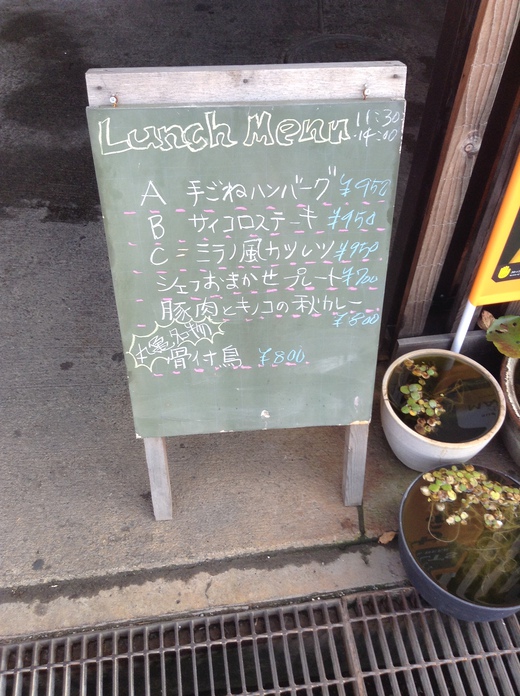 Lunch Menu 11:30
14:00
A 手ごねハンバーグ ¥950
B サイコロステーキ ¥950
C ミラノ風カツレツ ¥950
シェフおまかせプレート ¥700
豚肉とキノコの秋カレー
¥800
名物
骨付鳥 ¥800